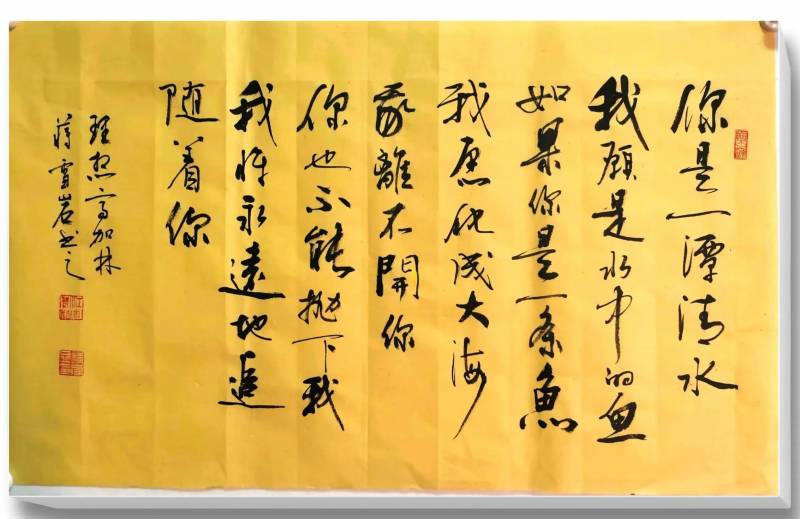 你是一潭清水
我願是水中的鱼
如果你是一条魚
我愿化成大海
我離不開你
你也不能抛下我
我将永遠地追
随着你
理高加林
蒋雪岩书之